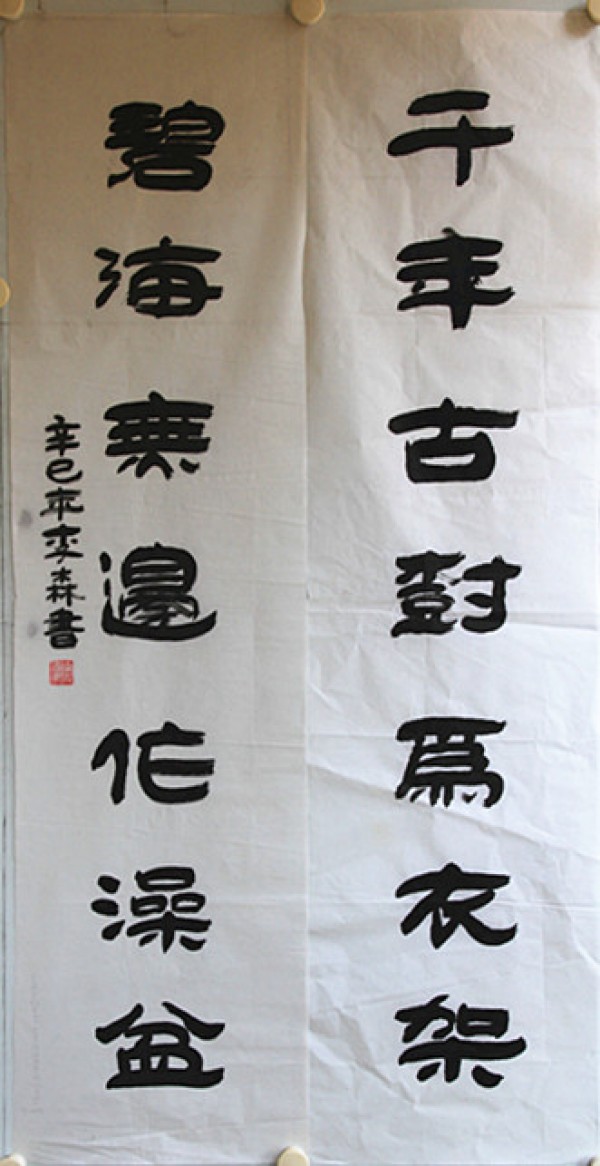 千年古樹爲衣架
碧海無邊作澡盆
辛巳年李森書